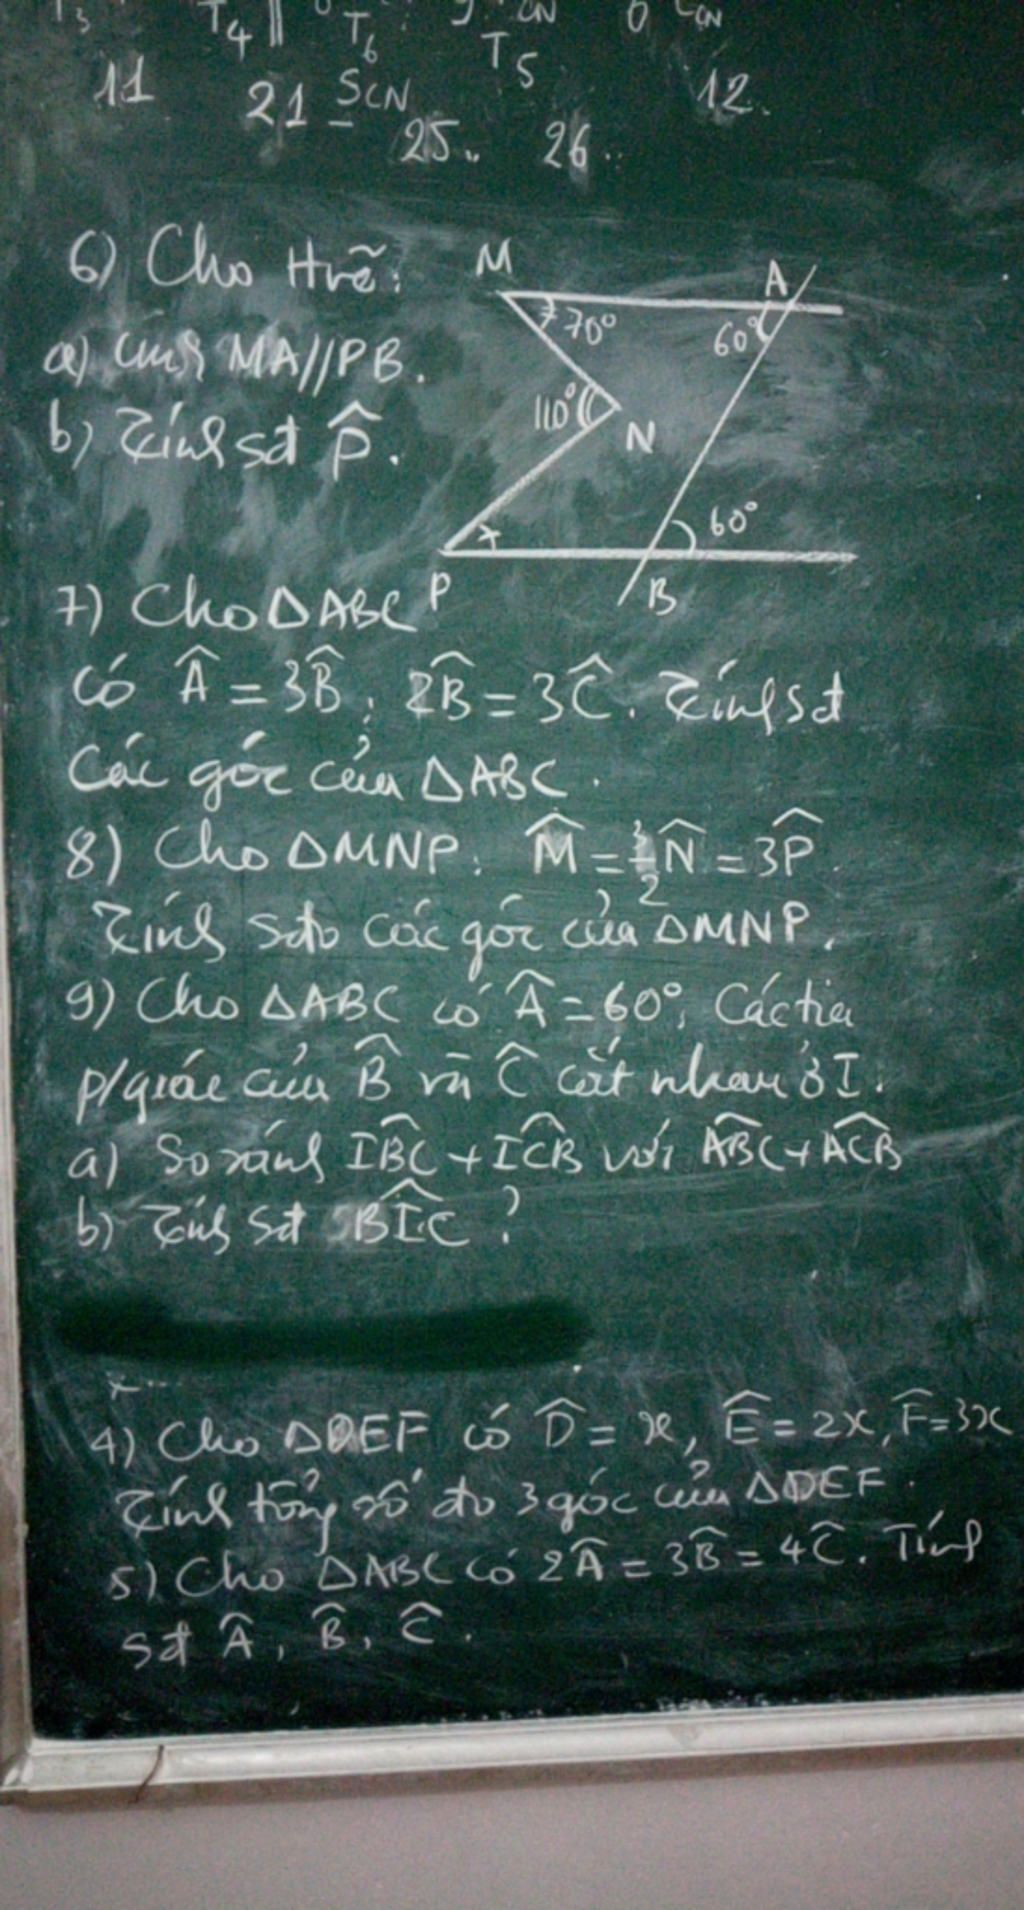 T3 T4 T6 T5
11 21 SCN 25 26 12
6) Cho Hvẽ:
a) cm MA//PB.
b) Tính sđ P̂.
M A
70° 60°
110° N
x 60°
P B
7) Cho ΔABC
có Â = 3B̂; 2B̂ = 3Ĉ. Tính sđ
các góc của ΔABC.
8) Cho ΔMNP: M̂ = 3/2 N̂ = 3P̂.
Tính sđo các góc của ΔMNP.
9) Cho ΔABC có Â = 60°; Các tia
p/giác của B̂ và Ĉ cắt nhau ở I.
a) So sánh IB̂C + IĈB với AB̂C + AĈB
b) Tính sđ BÎC ?
4) Cho ΔDEF có D̂ = x, Ê = 2x, F̂ = 3x
Tính tổng số đo 3 góc của ΔDEF.
5) Cho ΔABC có 2Â = 3B̂ = 4Ĉ. Tính
sđ Â, B̂, Ĉ.